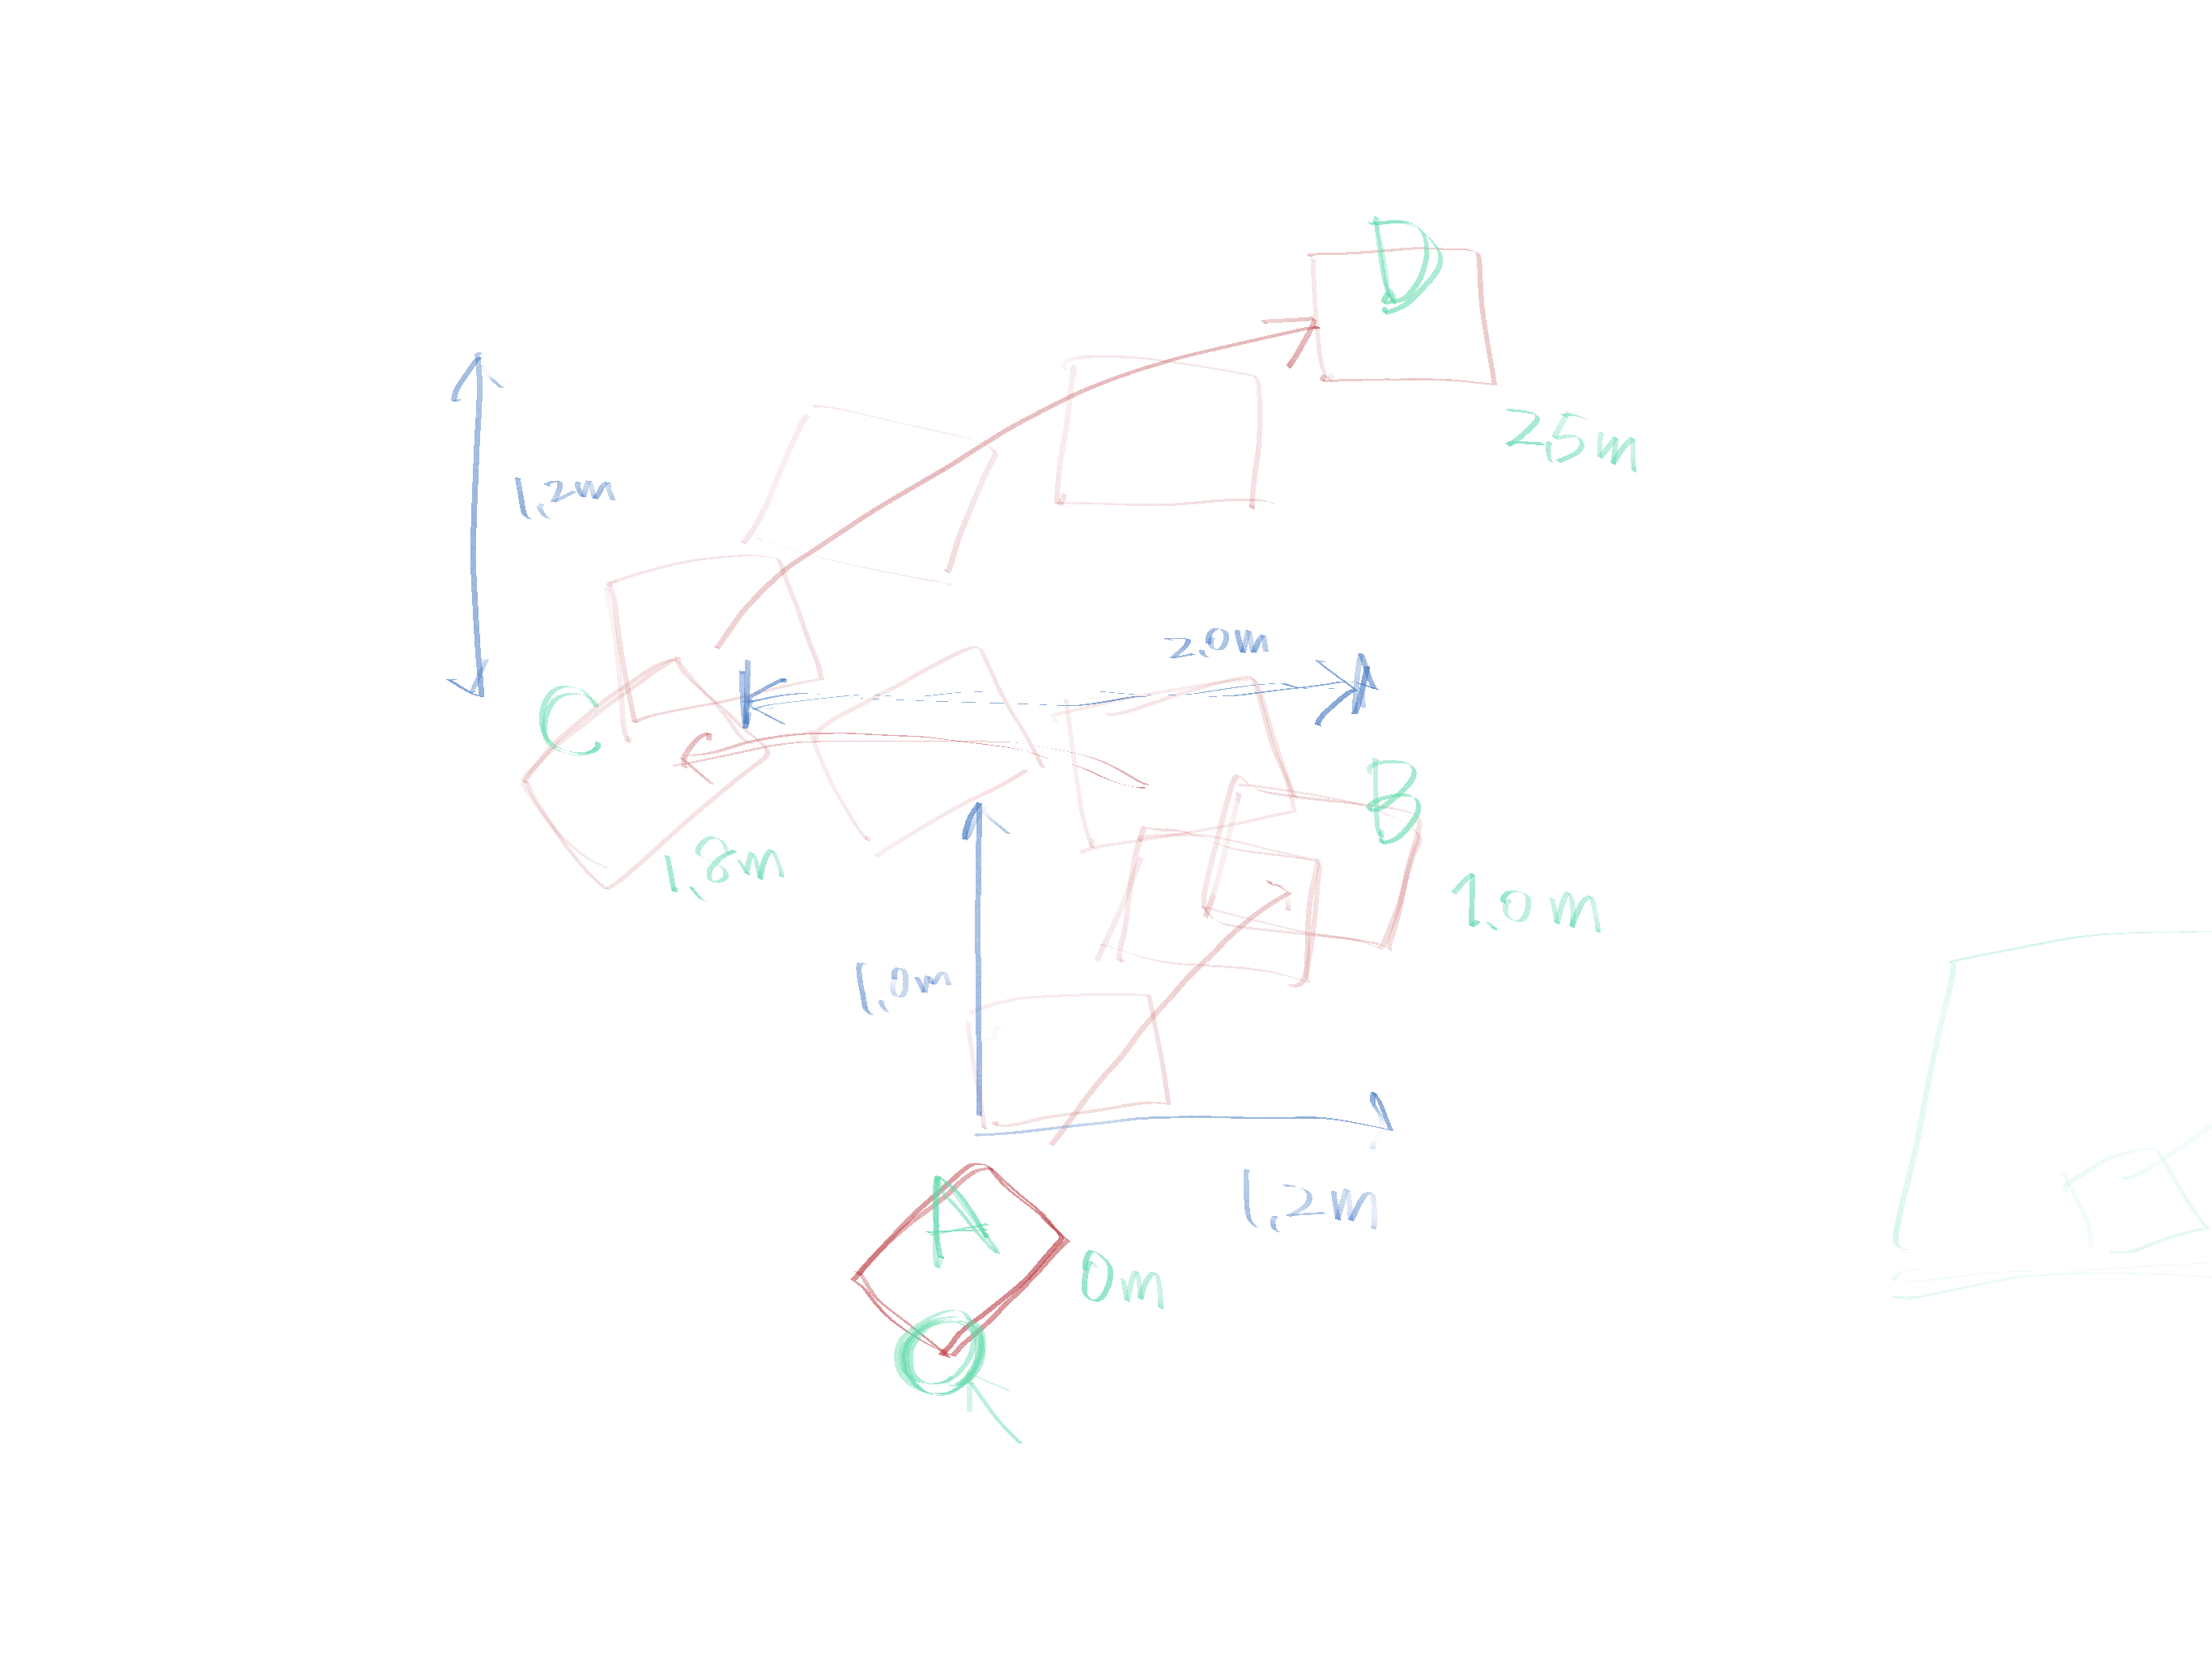 D
2,5m
1,2m
2,0m
C
B
1,8m
1,0m
1,0m
1,2m
A
0m